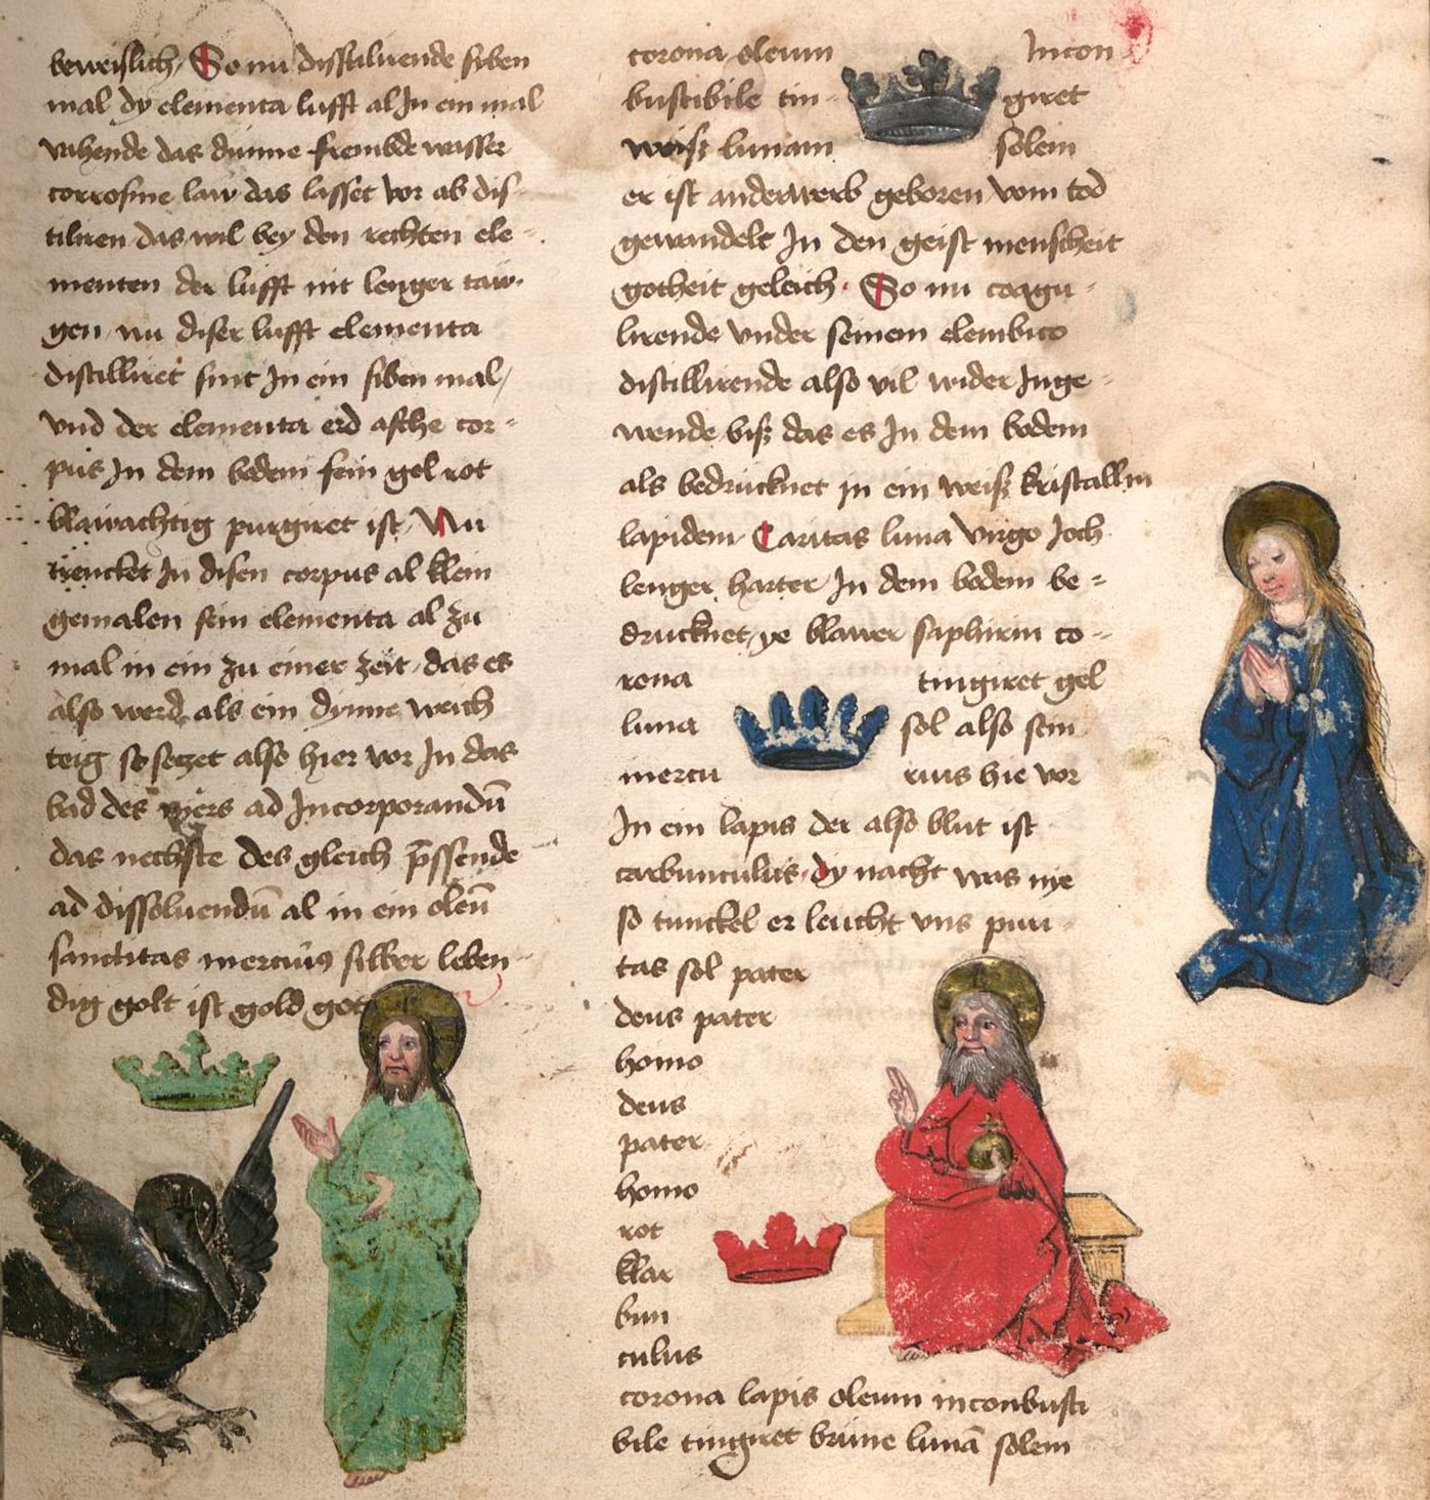 beweislich, So nu dissoluende siben
mal dy elementa lufft al In ein mal
vahende das dunne frembde wasser
corrosiue law das lasset vor ab dis-
tiliren das wil bey den rechten ele-
menten der lufft nit lenger taw-
gen nu diser lufft elementa
distilliret sint In ein siben mal,
vnd der elementa erd asche cor-
pus In dem bodem sein gel rot
blawachtig purgiret ist, Nu
trencket In disen corpus al klein
gemalen sein elementa al zu
mal in ein zu einer zeit, das es
also werd als ein dynne weich
teig so seczet also hier vor In das
bad des mers ad Incorporandū
das nechste des gleich pssende
ad dissoluendū al in ein oleū
sanctitas mercuriꝰ silber leben-
dig golt ist gold got
corona oleum Incon-
bustibile tin- giret
weisz lunam solem
er ist anderwerb geboren vom tod
gewandelt In den geist menscheit
gotheit geleich. So nu coagu-
lirende vnder seinem elembico
distillirende also vil wider Inge-
wende bisz das es In dem bodem
als bedrucknet in ein weisz kristallin
lapidem. Caritas luna virgo Joch
lenger harter In dem bodem be-
drucknet, ye blawer saphirin co-
rona tingiret gel
luna sol also sein
mercu rius hie vor
In ein lapis der also blut ist
carbunculus, dy nacht was nye
so tunckel er leucht vns puri-
tas sol pater
deus pater
homo
deus
pater
homo
rot
klar
bun
culus
corona lapis oleum inconbusti
bile tingiret brune lunā solem